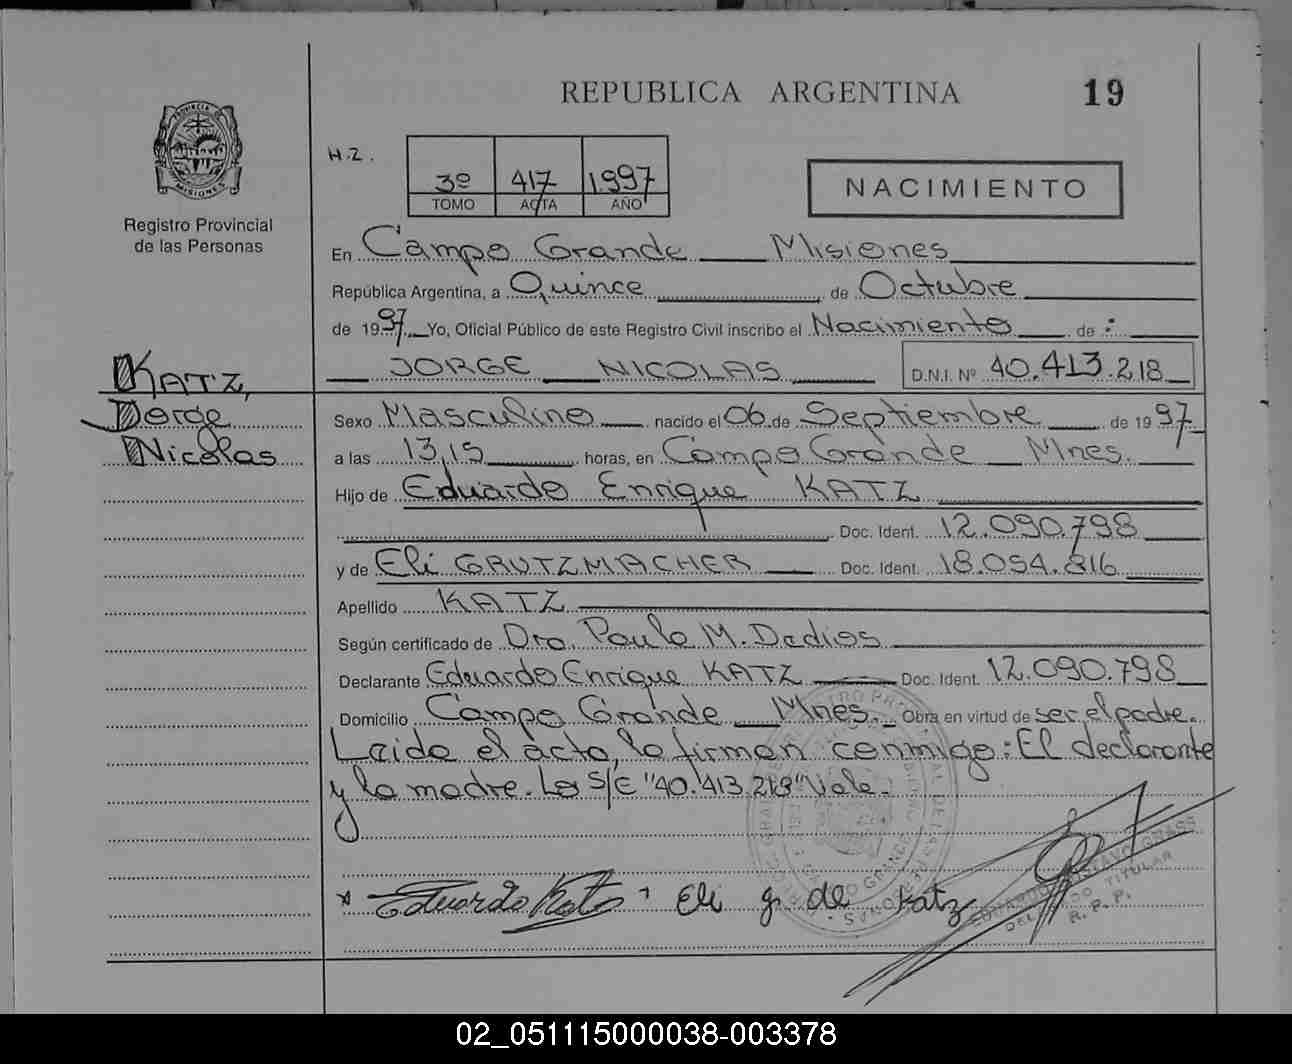 REPUBLICA ARGENTINA
19
PROVINCIA DE MISIONES
Registro Provincial
de las Personas
H.Z.
3º 417 1997
TOMO ACTA AÑO
NACIMIENTO
En Campo Grande Misiones
República Argentina, a Quince de Octubre
de 1997 Yo, Oficial Público de este Registro Civil inscribo el Nacimiento de :
JORGE NICOLAS D.N.I. Nº 40.413.218
KATZ,
Jorge
Nicolas
Sexo Masculino nacido el 06 de Septiembre de 1997
a las 13,15 horas, en Campo Grande Mnes.
Hijo de Eduardo Enrique KATZ
Doc. Ident. 12.090.798
y de Eli GRUTZMACHER Doc. Ident. 18.054.816
Apellido KATZ
Según certificado de Dra. Paula M. Dedios
Declarante Eduardo Enrique KATZ Doc. Ident. 12.090.798
Domicilio Campo Grande Mnes. Obra en virtud de ser el padre.
Leida el acta, la firman conmigo: El declarante
y la madre. Lo S/E "40.413.218" Vale.
Eduardo Katz
Eli g. de Katz
EDUARDO GUSTAVO GRASS
DELEGADO TITULAR
R. P. P.
02_051115000038-003378